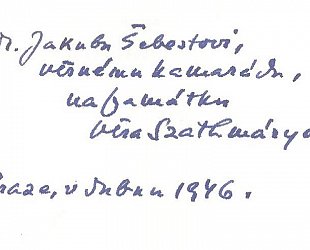 Dr. Jakubu Šebestovi,
věrnému kamarádu,
na památku
Věra Szathmáryo
Praze, v dubnu 1946.